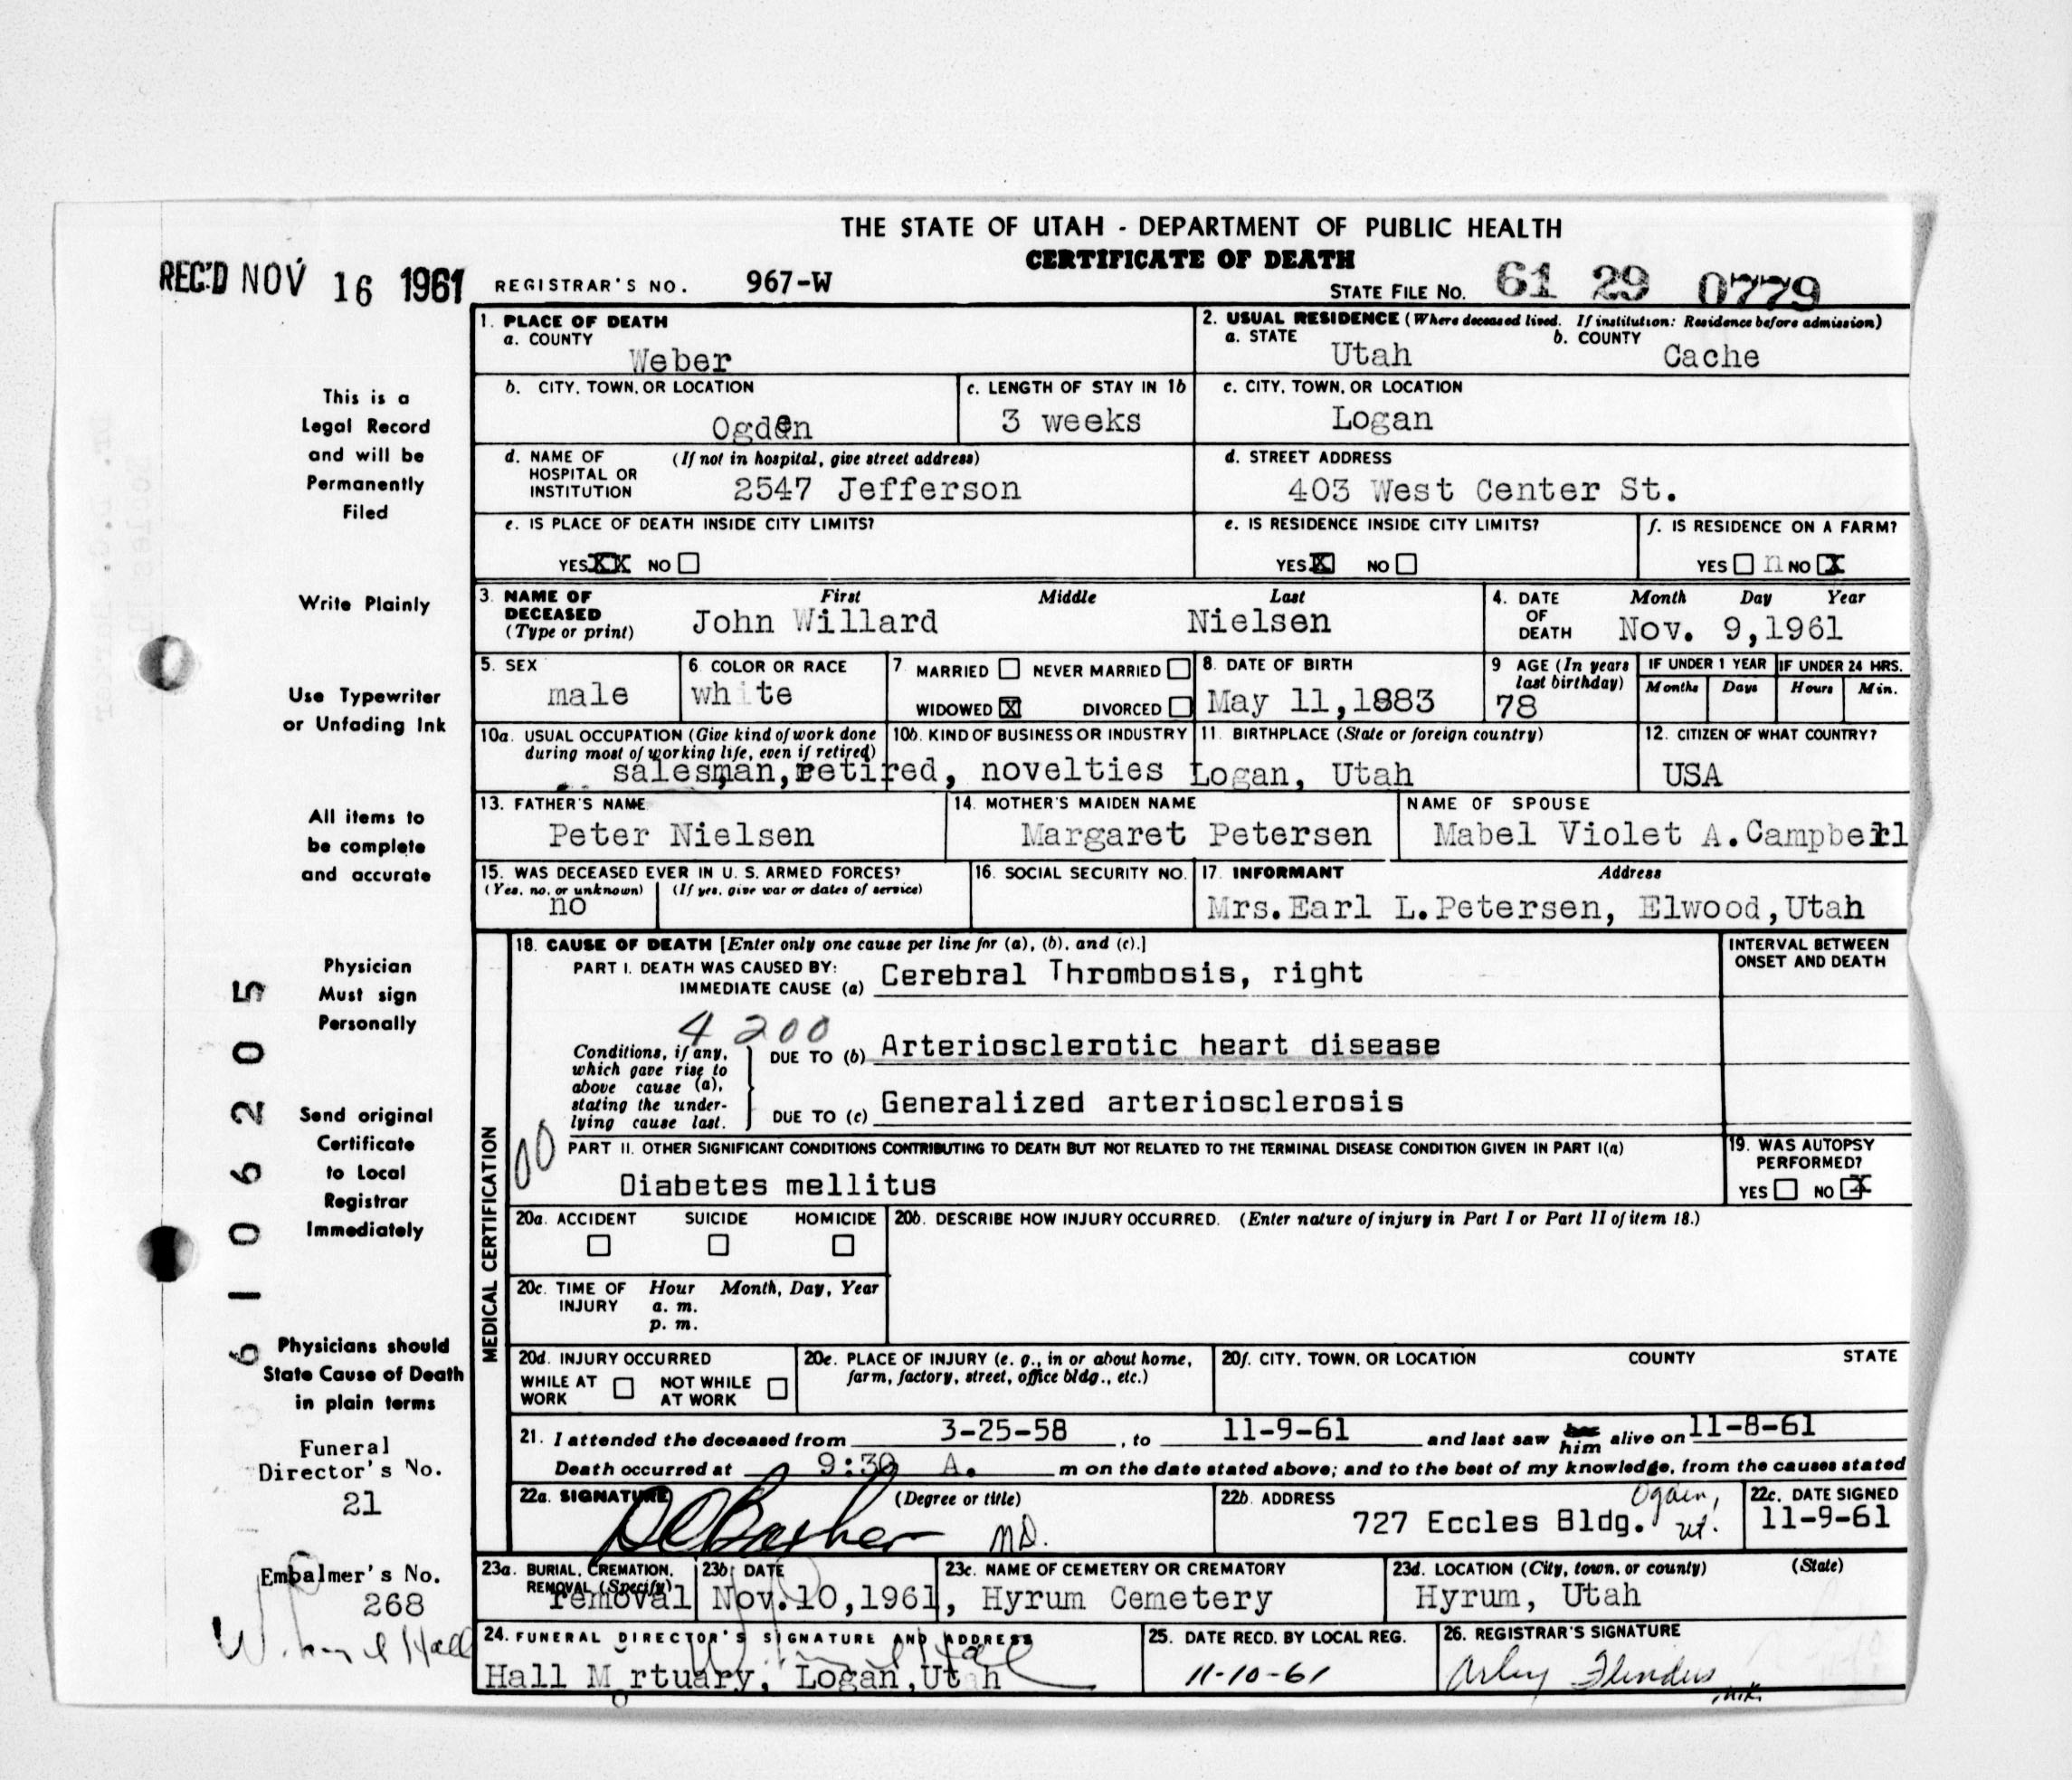 THE STATE OF UTAH - DEPARTMENT OF PUBLIC HEALTH
CERTIFICATE OF DEATH
REC'D NOV 16 1961 REGISTRAR'S NO. 967-W STATE FILE NO. 61 29 0779
1. PLACE OF DEATH
a. COUNTY
Weber
2. USUAL RESIDENCE (Where deceased lived. If institution: Residence before admission)
a. STATE b. COUNTY
Utah Cache
b. CITY, TOWN, OR LOCATION
Ogden
c. LENGTH OF STAY IN 1b
3 weeks
c. CITY, TOWN, OR LOCATION
Logan
d. NAME OF (If not in hospital, give street address)
HOSPITAL OR
INSTITUTION 2547 Jefferson
d. STREET ADDRESS
403 West Center St.
e. IS PLACE OF DEATH INSIDE CITY LIMITS?
YES XX NO
e. IS RESIDENCE INSIDE CITY LIMITS?
YES X NO
f. IS RESIDENCE ON A FARM?
YES n NO X
3. NAME OF First Middle Last
DECEASED
(Type or print) John Willard Nielsen
4. DATE Month Day Year
OF
DEATH Nov. 9,1961
5. SEX
male
6. COLOR OR RACE
white
7. MARRIED NEVER MARRIED
WIDOWED X DIVORCED
8. DATE OF BIRTH
May 11,1883
9 AGE (In years
last birthday)
78
IF UNDER 1 YEAR IF UNDER 24 HRS.
Months Days Hours Min.
10a. USUAL OCCUPATION (Give kind of work done
during most of working life, even if retired)
10b. KIND OF BUSINESS OR INDUSTRY
salesman,retired, novelties
11. BIRTHPLACE (State or foreign country)
Logan, Utah
12. CITIZEN OF WHAT COUNTRY?
USA
13. FATHER'S NAME
Peter Nielsen
14. MOTHER'S MAIDEN NAME
Margaret Petersen
NAME OF SPOUSE
Mabel Violet A.Campbell
15. WAS DECEASED EVER IN U. S. ARMED FORCES?
(Yes, no, or unknown) (If yes, give war or dates of service)
no
16. SOCIAL SECURITY NO.
17. INFORMANT Address
Mrs.Earl L.Petersen, Elwood,Utah
MEDICAL CERTIFICATION
18. CAUSE OF DEATH [Enter only one cause per line for (a), (b), and (c).]
INTERVAL BETWEEN
ONSET AND DEATH
PART I. DEATH WAS CAUSED BY:
IMMEDIATE CAUSE (a) Cerebral Thrombosis, right
4200
Conditions, if any,
which gave rise to
above cause (a),
stating the under-
lying cause last.
DUE TO (b) Arteriosclerotic heart disease
DUE TO (c) Generalized arteriosclerosis
00
PART II. OTHER SIGNIFICANT CONDITIONS CONTRIBUTING TO DEATH BUT NOT RELATED TO THE TERMINAL DISEASE CONDITION GIVEN IN PART I(a)
Diabetes mellitus
19. WAS AUTOPSY
PERFORMED?
YES NO X
20a. ACCIDENT SUICIDE HOMICIDE
20b. DESCRIBE HOW INJURY OCCURRED. (Enter nature of injury in Part I or Part II of item 18.)
20c. TIME OF Hour Month, Day, Year
INJURY a. m.
p. m.
20d. INJURY OCCURRED
WHILE AT NOT WHILE
WORK AT WORK
20e. PLACE OF INJURY (e. g., in or about home,
farm, factory, street, office bldg., etc.)
20f. CITY, TOWN, OR LOCATION COUNTY STATE
21. I attended the deceased from 3-25-58, to 11-9-61 and last saw her him alive on 11-8-61
Death occurred at 9:30 A. m on the date stated above; and to the best of my knowledge, from the causes stated
22a. SIGNATURE (Degree or title)
M.D.
22b. ADDRESS
727 Eccles Bldg. Ogden, Ut.
22c. DATE SIGNED
11-9-61
23a. BURIAL, CREMATION,
REMOVAL (Specify)
removal
23b. DATE
Nov.10,1961,
23c. NAME OF CEMETERY OR CREMATORY
Hyrum Cemetery
23d. LOCATION (City, town, or county) (State)
Hyrum, Utah
24. FUNERAL DIRECTOR'S SIGNATURE AND ADDRESS
Hall Mortuary, Logan,Utah
25. DATE RECD. BY LOCAL REG.
11-10-61
26. REGISTRAR'S SIGNATURE
This is a
Legal Record
and will be
Permanently
Filed
Write Plainly
Use Typewriter
or Unfading Ink
All items to
be complete
and accurate
Physician
Must sign
Personally
Send original
Certificate
to Local
Registrar
Immediately
Physicians should
State Cause of Death
in plain terms
Funeral
Director's No.
21
Embalmer's No.
268
6106205